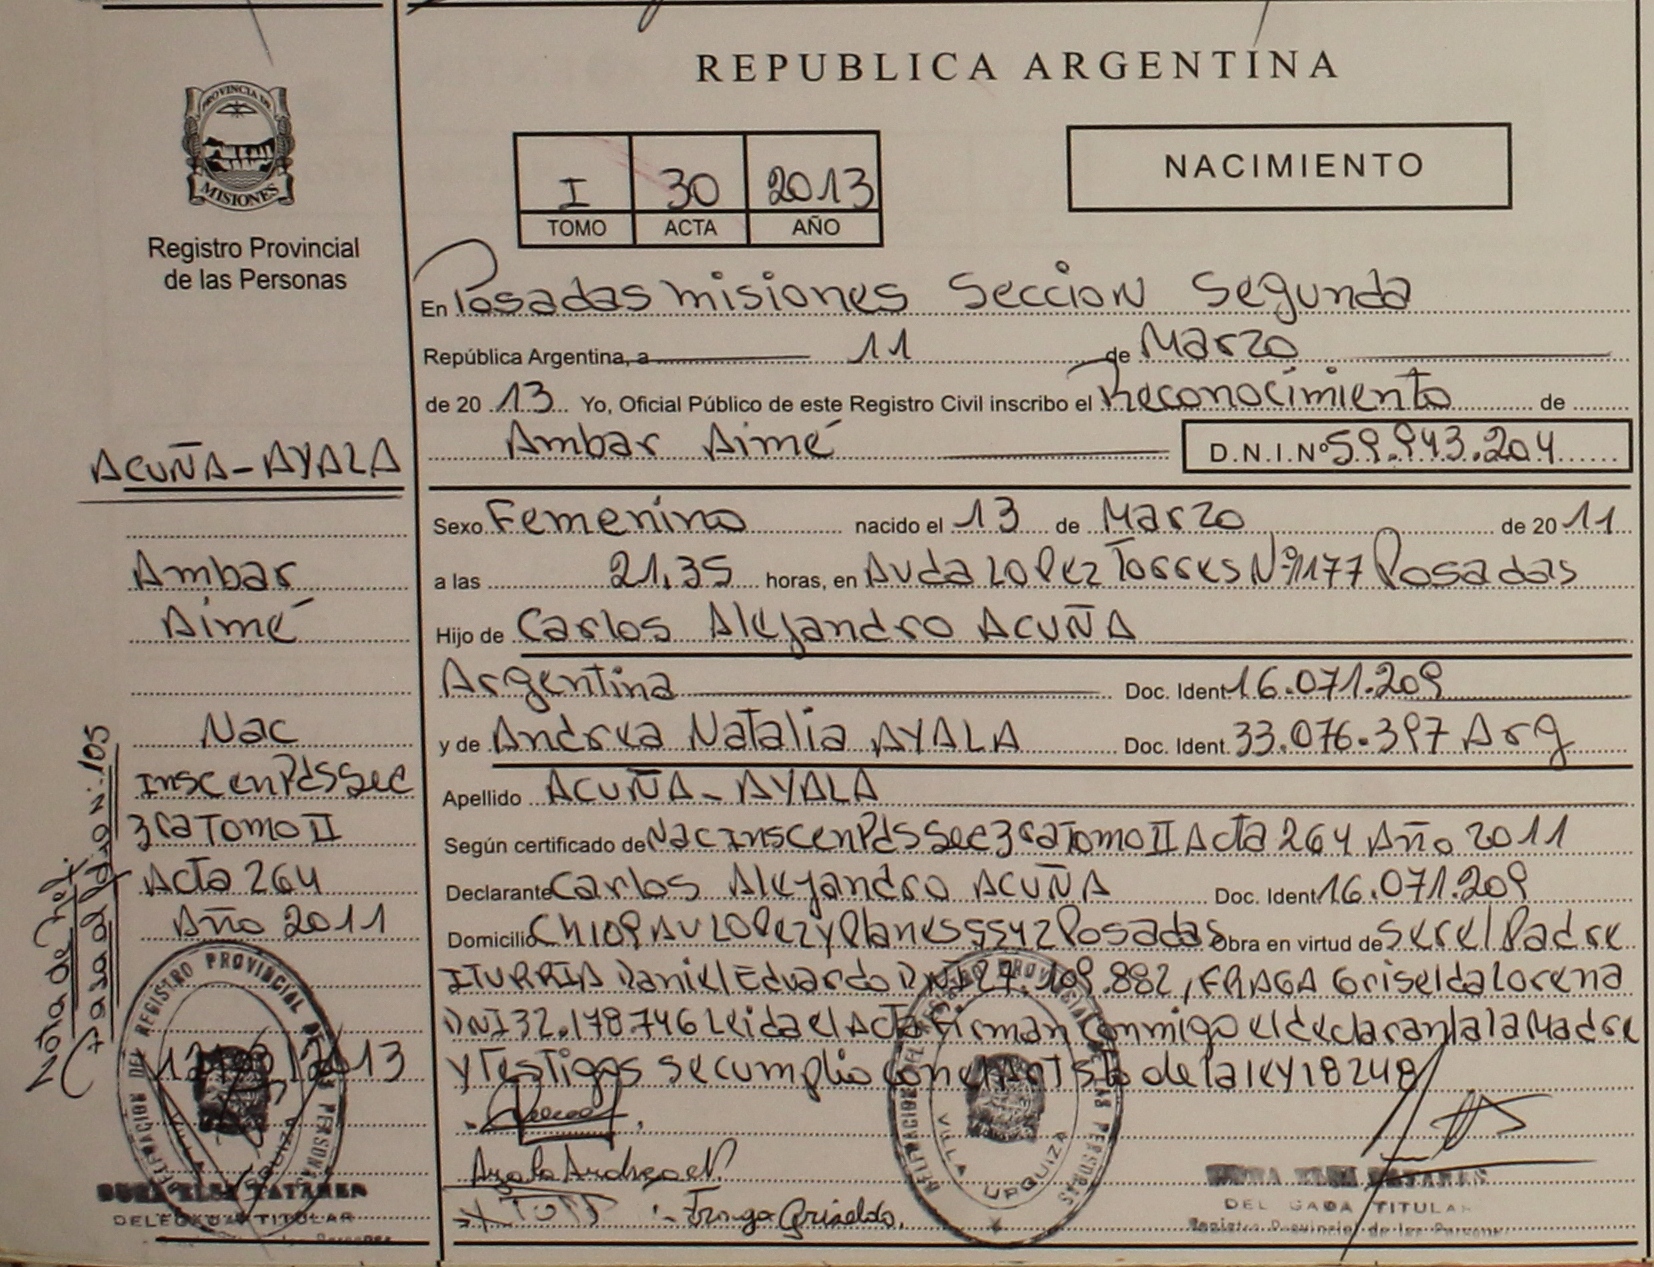 PROVINCIA DE
MISIONES
Registro Provincial
de las Personas
ACUÑA-AYALA
Ambar
Aimé
Nac
Insc en Pds Sec
3ra Tomo II
Acta 264
Año 2011
Nota de Ref.
Casada N: 105
DELEGACION DEL REGISTRO PROVINCIAL DE LAS PERSONAS
URQUIZA
2013
TITULAR
REPUBLICA ARGENTINA
I 30 2013
TOMO ACTA AÑO
NACIMIENTO
En Posadas misiones Seccion Segunda
República Argentina, a 11 de Marzo
de 20 13 Yo, Oficial Público de este Registro Civil inscribo el Reconocimiento de
Ambar Aimé D.N.I.Nº 59.943.204
Sexo Femenino nacido el 13 de Marzo de 20 11
a las 21,35 horas, en Avda Lopez Torres Nº 1177 Posadas
Hijo de Carlos Alejandro ACUÑA
Argentina Doc. Ident 16.071.209
y de Andrea Natalia AYALA Doc. Ident. 33.076.397 Arg
Apellido ACUÑA-AYALA
Según certificado de Nac Insc en Pds Sec 3ra Tomo II Acta 264 Año 2011
Declarante Carlos Alejandro ACUÑA Doc. Ident 16.071.209
Domicilio CH109 AV Lopez y Planes 5542 Posadas Obra en virtud de Ser el Padre
ITURRIA Daniel Eduardo DNI 27.109.882, FRAGA Griselda Lorena
DNI 32.178746 Leida el Acta Firman Conmigo el declarante la Madre
y Testigos se cumplio con el Art 5to de la ley 18248
Ayala Andrea N.
Fraga Griselda.
DELEGACION DEL REGISTRO PROVINCIAL DE LAS PERSONAS
VILLA URQUIZA
TITULAR
Registro Provincial de las Personas